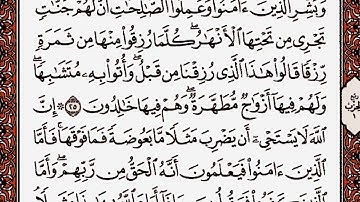 وَبَشِّرِ ٱلَّذِينَ ءَامَنُوا۟ وَعَمِلُوا۟ ٱلصَّـٰلِحَـٰتِ أَنَّ لَهُمْ جَنَّـٰتٍ
تَجْرِى مِن تَحْتِهَا ٱلْأَنْهَـٰرُ ۖ كُلَّمَا رُزِقُوا۟ مِنْهَا مِن ثَمَرَةٍ
رِّزْقًا ۙ قَالُوا۟ هَـٰذَا ٱلَّذِى رُزِقْنَا مِن قَبْلُ ۖ وَأُتُوا۟ بِهِۦ مُتَشَـٰبِهًا ۖ
وَلَهُمْ فِيهَآ أَزْوَٰجٌ مُّطَهَّرَةٌ ۖ وَهُمْ فِيهَا خَـٰلِدُونَ ٢٥ ۞ إِنَّ
ٱللَّهَ لَا يَسْتَحْىِۦٓ أَن يَضْرِبَ مَثَلًا مَّا بَعُوضَةً فَمَا فَوْقَهَا ۚ فَأَمَّا
ٱلَّذِينَ ءَامَنُوا۟ فَيَعْلَمُونَ أَنَّهُ ٱلْحَقُّ مِن رَّبِّهِمْ ۖ وَأَمَّا